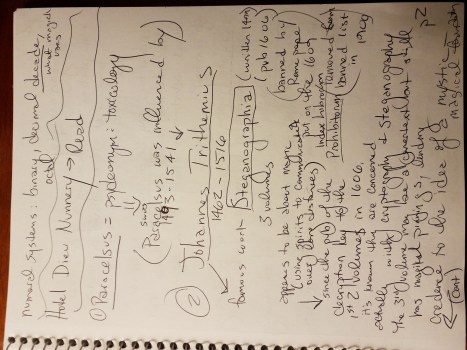 numeral systems: binary, decimal decade,
octal
what magick
uses
Hotel Dieu Nunnery → read
① Paracelsus = pseudonym: toxicology
swiss
(Paracelsus was influenced by)
1493-1541
② Johannes Trithemius
1462-1516
famous work Steganographia (written 1499)
(pub 1606)
3 volumes
banned by
Rome
put on the 1609
Index Librorum
Prohibitorum
removed from
banned list
in 1900
appears to be about magic
(using spirits to communicate
over long distances)
since the pub of the
decryption key to the
1st 2 volumes in 1606,
it's known they are concerned
actually with cryptography & steganography
The 3rd volume has been cracked but still
has magickal pairings lending
credence to the idea of a mystic
magical
(cont)
p2